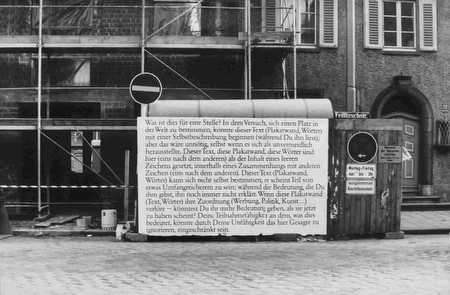 Was ist dies für eine Stelle? In dem Versuch, sich einen Platz in
der Welt zu bestimmen, könnte dieser Text (Plakatwand, Wörter)
mit einer Selbstbeschreibung beginnen (während Du ihn liest);
aber das wäre unnötig, selbst wenn es sich als unvermeidlich
herausstellte. Dieser Text, diese Plakatwand, diese Wörter sind
hier (eins nach dem anderen) als der Inhalt eines leeren
Zeichens gesetzt, innerhalb eines Zusammenhangs mit anderen
Zeichen (eins nach dem anderen). Dieser Text (Plakatwand,
Wörter) kann sich nicht selbst bestimmen, er scheint Teil von
etwas Umfangreicherem zu sein; während die Bedeutung, die Du
ihm gibst, ihn noch immer nicht erklärt. Wenn diese Plakatwand
(Text, Wörter) ihre Zuordnung (Werbung, Politik, Kunst...)
verlöre – könntest Du ihr mehr Bedeutung geben, als sie jetzt
zu haben scheint? Deine Teilnahmefähigkeit an dem, was dies
bedeutet, könnte durch Deine Unfähigkeit das hier Gesagte zu
ignorieren, eingeschränkt sein.
Montag-Freitag